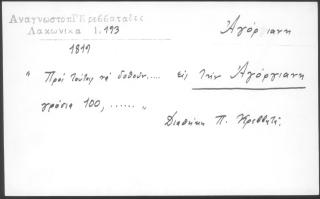 Ἀναγνωστοπ' Κρεββαταδες
Λακωνικα 1.193
Ἀγόρ ιανη
1819
" Πρός τούτοις νά δοθοῦν..... εἰς τήν Ἀγόργιανη
γρόσια 100, ...... "
Διαθήκη Π. Κρεββατᾶ.